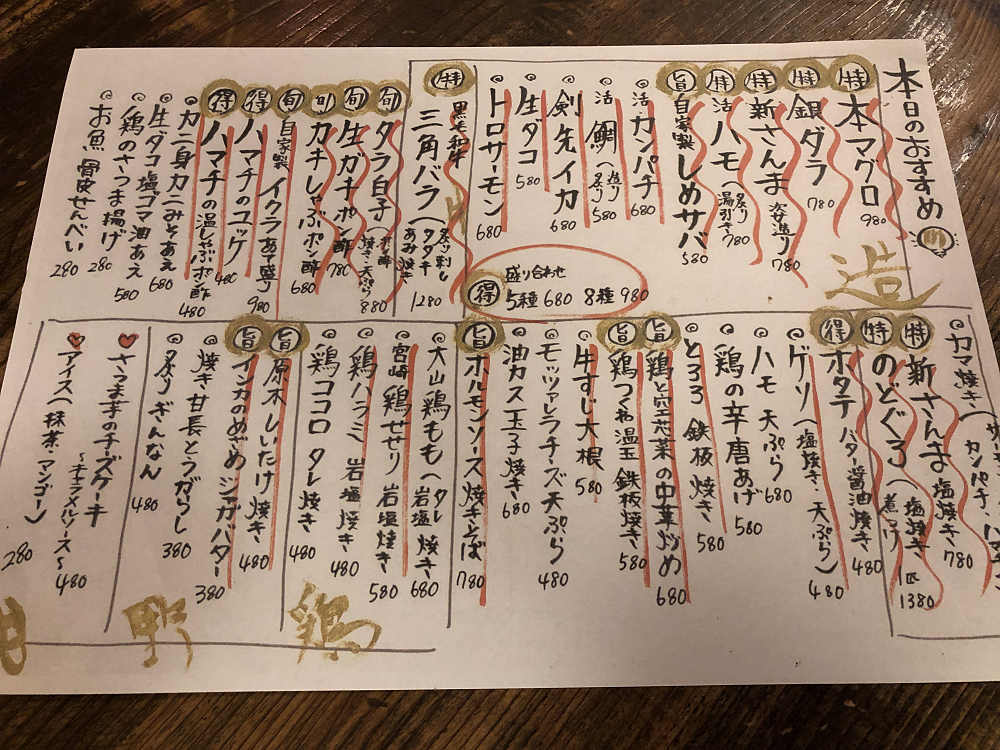 本日のおすすめ
造
特 本マグロ 980
特 銀ダラ 780
特 新さんま 姿造り 780
特 活ハモ(炙り 湯引き 780
旨 自家製 しめサバ 580
活 カンパチ 680
活 鯛(造り 炙り 580
剣先イカ 680
生ダコ 580
トロサーモン 680
得 盛り合わせ
5種 680 8種 980
特 黒毛和牛 三角バラ(炙り刺し タタキ あみ焼き 1280
旬 タラ白子(ポン酢 焼き・天ぷら 880
旬 生ガキポン酢 780
旬 カキしゃぶポン酢 680
旬 自家製 イクラあて盛り 980
得 ハマチのユッケ 480
得 ハマチの温しゃぶポン酢 480
カニ身カニみそあえ 680
生ダコ塩ゴマ油あえ 580
鶏のさつま揚げ 280
お魚 骨皮せんべい 280
カマ焼き(
カンパチ、
特 新さんま 塩焼き 780
特 のどぐろ(塩焼き 煮つけ 1匹 1380
得 ホタテバター醤油焼き 480
ゲソ(塩焼き・天ぷら) 480
ハモ 天ぷら 680
鶏の辛唐あげ 580
とろろ 鉄板焼き 580
旨 鶏と空芯菜の中華炒め 680
旨 鶏つくね温玉 鉄板焼き 580
牛すじ大根 580
モッツァレラチーズ天ぷら 480
油カス玉子焼き 680
旨 ホルモンソース焼きそば 780
大山鶏もも(タレ 岩塩 焼き 680
宮崎鶏せせり 岩塩焼き 580
鶏ハラミ 岩塩焼き 480
鶏ココロ タレ焼き 480
旨 原木しいたけ焼き 480
旨 インカのめざめジャガバター 380
焼き甘長とうがらし 380
炙りぎんなん 480
さつま芋のチーズケーキ
〜キャラメルソース〜 480
アイス(抹茶・マンゴー) 280
鶏
野